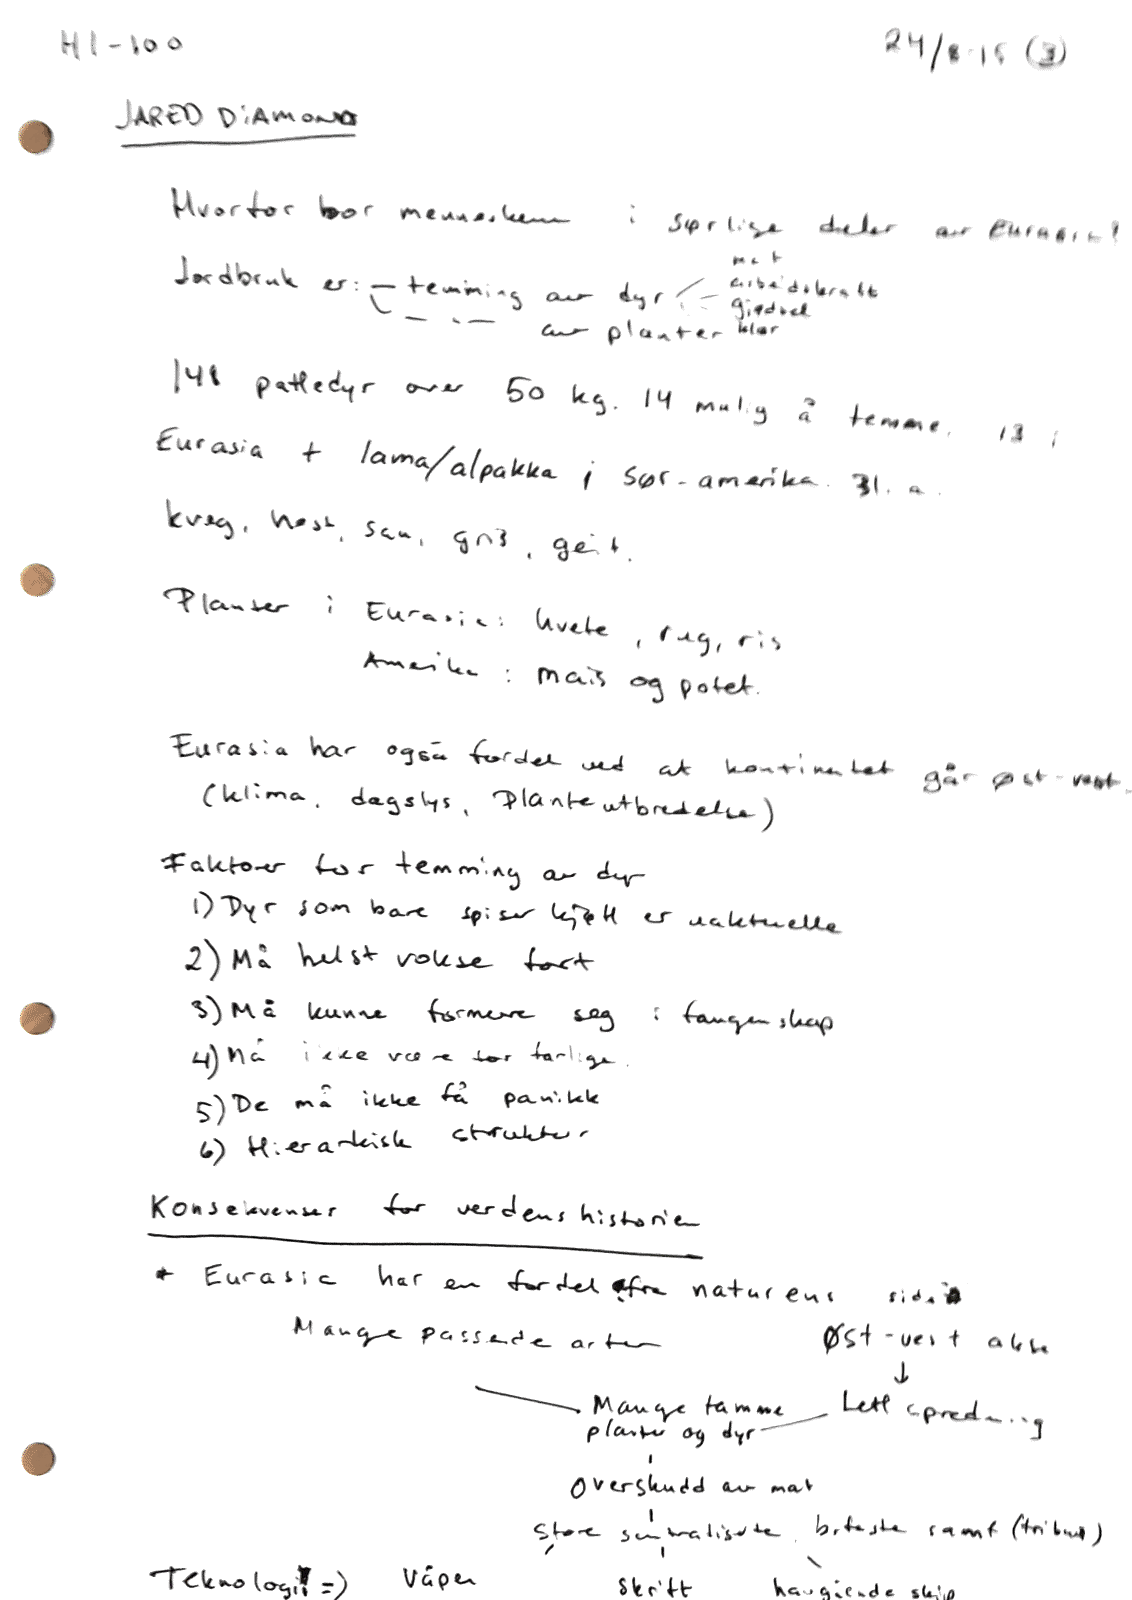 HI-100
24/8-15 (3)
JARED DiAMOND
Hvorfor bor menneskene i sørlige deler av Eurasia?
mat
Jordbruk er: - temming av dyr arbeidskraft
gjødsel
av planter klær
148 pattedyr over 50 kg. 14 mulig å temme. 13 i
Eurasia + lama/alpakka i Sør-amerika. Bl. a.
kveg, hest, sau, gris, geit.
Planter i Eurasia: hvete, rug, ris
Amerika: mais og potet.
Eurasia har også fordel ved at kontinentet går øst-vest.
(klima, dagslys, Planteutbredelse)
Faktorer for temming av dyr
1) Dyr som bare spiser kjøtt er uaktuelle
2) Må helst vokse fort
3) Må kunne formere seg i fangenskap
4) Må ikke være for farlige.
5) De må ikke få panikk
6) Hierarkisk struktur
Konsekvenser for verdenshistorien
* Eurasia har en fordel fra naturens side
Mange passende arter Øst-vest akse
↓
Mange tamme Lett spredning
planter og dyr
Overskudd av mat
Store sentraliserte, bofaste samf (tribut)
Teknologi =) Våpen skrift havgående skip